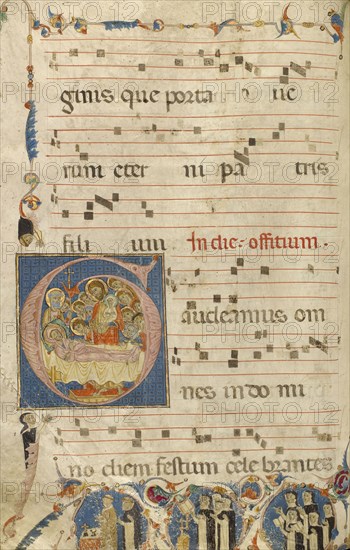 ginis que porta ue
rum eter ni pa tris
fili um In die: offitium.
G audeamus om
nes in do mi
no diem festum cele brantes